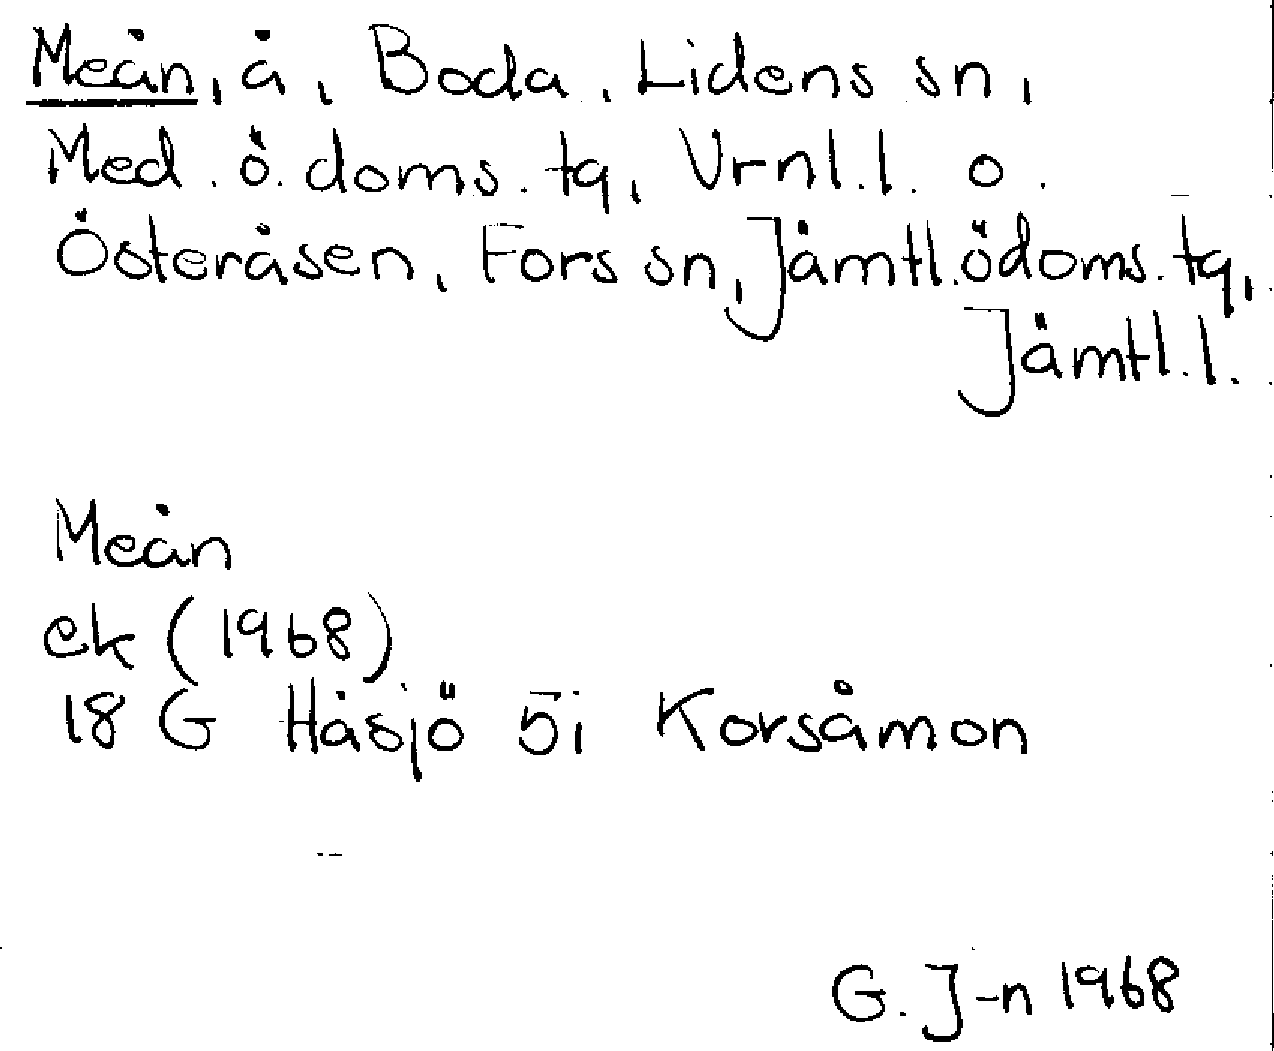 Meån, å, Boda, Lidens sn,
Med. ö. doms. tg, Vrnl.l. o.
Österåsen, Fors sn, Jämtl.ödoms.tg,
Jämtl.l.
Meån
ek (1968)
18 G Håsjö 5i Korsåmon
G. J-n 1968